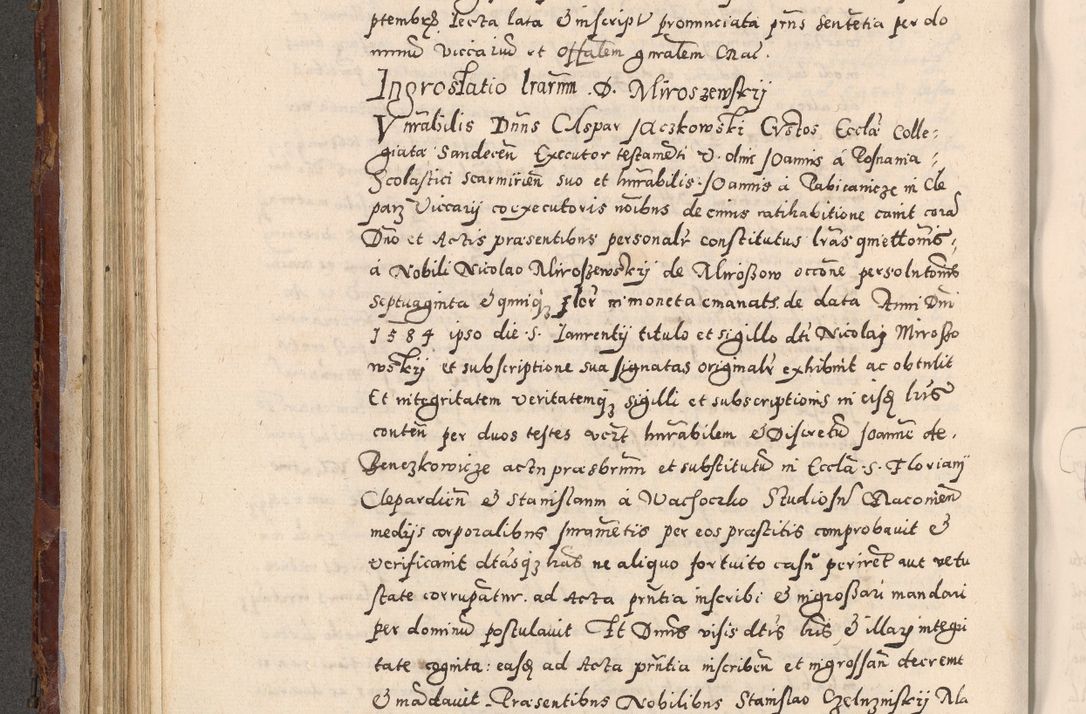 ptembrȩ lecta lata & in script pronunciata prns sententia per do
minū Viccariū et Offalem gnralem Crac.
Ingrossatio lrarum .D. Miroszewskij
Vnrabilis Dnns Caspar Jaczkowski Custos Eccla Colle-
giata Sandecen Executor testameti V. olim Joannis á Posnania
Scolastici Scarmirien suo et hnrabilis Joannis á Pabicanicze in Cle
parz Viccarij coexecutoris noibus de cuius ratihabitione cavit corā
Dno et Actis præsentibus personalr constitutus lras quiettonis
á Nobili Nicolao Miroszewskij de Miroszow occone persolutonis
septuaginta & quinqȝ flor in moneta emanats. de data Anni Dni
1584 ipso die .s. Laurentij titulo et sigillo dti Nicolaj Mirosso
wskij et subscriptione sua signatas originalr exhibuit ac obtulit
Et integritatem veritatemqȝ sigilli et subscriptionis in eisdȩ lris
conten per duos testes vert hnrabilem & Discretū Joanne de
Benezkowicze actu præsbrum et substitutū in Eccla .s. Florianij
Clepardien & Stanislaum á Wachoczko Studiosū Cracovien
medijs corporalibus juramētis per eos præstitis comprobavit &
verificavit dtasqȝ lras ne aliquo fortuito casu periret aut vetu
state corrupātur. ad Acta prntia inscribi & ingrossari mandari
per dominū postulavit Et Dnus visis dtis lris & illarū integri
tate cognita: easdȩ ad Acta prntia inscriben et ingrossan decrevit
& mādavit Præsentibus Nobilibus Stanislao Czeluzniskij Ala